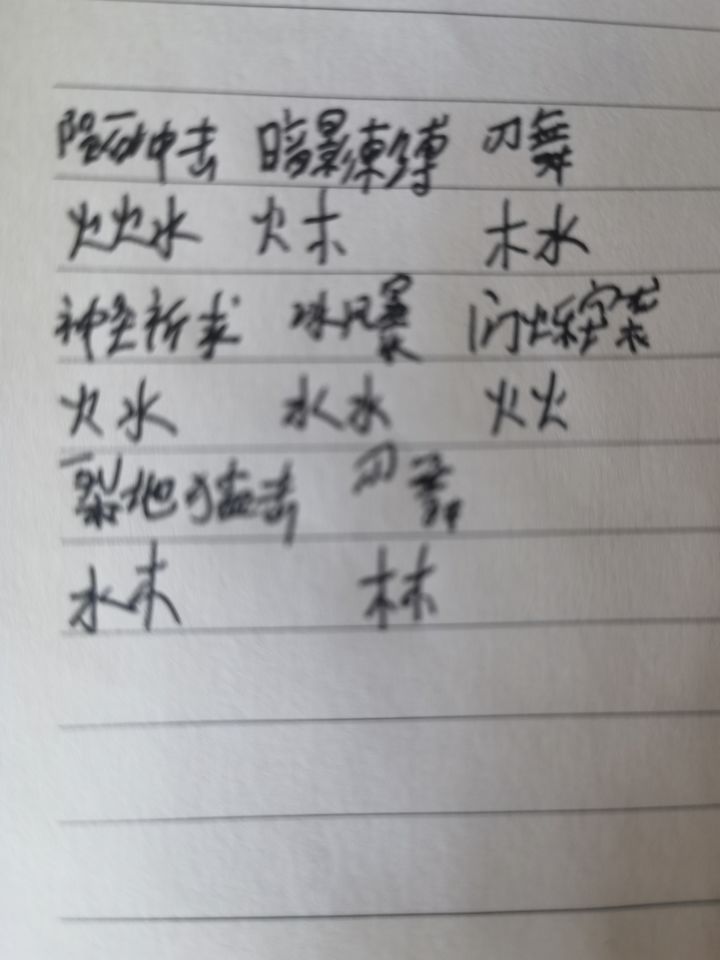 陨石冲击 暗影束缚 刃舞
火火水 火木 木水
神圣祈求 冰风暴 闪烁突袭
火水 水水 火火
裂地猛击 刃舞
水木 木木